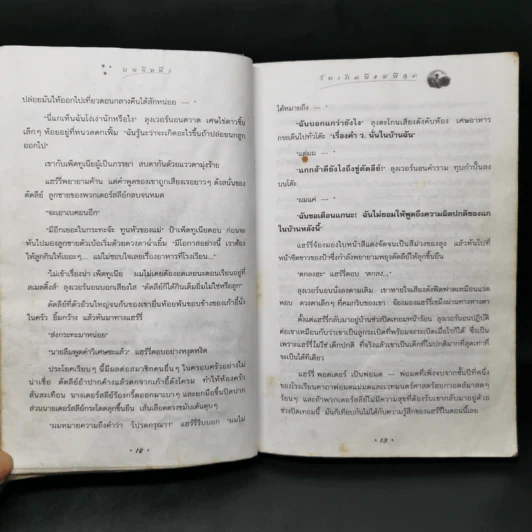 บทที่หนึ่ง
ปล่อยมันให้ออกไปเที่ยวตอนกลางคืนได้สักหน่อย — "
"นี่แกเห็นฉันโง่เง่านักหรือไง" ลุงเวอร์นอนตวาด เศษไข่ดาวชิ้น
เล็กๆ ห้อยอยู่ที่หนวดดกเฟิ้ม "ฉันรู้นะว่าจะเกิดอะไรขึ้นถ้าปล่อยนกฮูก
ออกไป"
เขากับเพ็ตทูเนียผู้เป็นภรรยา สบตากันด้วยแววตามุ่งร้าย
แฮร์รี่พยายามค้าน แต่คำพูดของเขาถูกเสียงเรอยาวๆ ดังสนั่นของ
ดัดลีย์ ลูกชายของพวกเดอร์สลีย์กลบจนหมด
"จะเอาเบคอนอีก"
"มีอีกเยอะในกระทะจ้ะ ทูนหัวของแม่" ป้าเพ็ตทูเนียตอบ ก่อนจะ
หันไปมองลูกชายตัวเบ้อเริ่มด้วยดวงตาฉ่ำเยิ้ม "มีโอกาสอย่างนี้ เราต้อง
ให้ลูกกินให้เยอะๆ... แม่ไม่ชอบใจเลยเรื่องอาหารที่โรงเรียน..."
"ไม่เข้าเรื่องน่า เพ็ตทูเนีย ผมไม่เคยต้องอดเลยนะตอนเรียนอยู่ที่
สเมลติ้งส์" ลุงเวอร์นอนบอกเสียงใส "ดัดลีย์ก็ได้กินเต็มอิ่มไม่ใช่หรือลูก"
ดัดลีย์ที่ตัวอ้วนใหญ่จนก้นของเขายื่นห้อยพ้นขอบข้างของเก้าอี้นั่ง
ในครัว ยิ้มกว้าง แล้วหันมาทางแฮร์รี่
"ส่งกระทะมาหน่อย"
"นายลืมพูดคำวิเศษซะแล้ว" แฮร์รี่ตอบอย่างหงุดหงิด
ประโยคเรียบๆ นี้มีผลต่อสมาชิกคนอื่นๆ ในครอบครัวอย่างไม่
น่าเชื่อ ดัดลีย์อ้าปากค้างแล้วตกจากเก้าอี้ดังโครม ทำให้ห้องครัว
สั่นสะเทือน นางเดอร์สลีย์ร้องกรี๊ดออกมาเบาๆ และยกมือขึ้นปิดปาก
ส่วนนายเดอร์สลีย์กระโดดลุกขึ้นยืน เส้นเลือดตรงขมับเต้นตุบๆ
"ผมหมายความถึงคำว่า 'โปรดกรุณา'!" แฮร์รี่รีบบอก "ผมไม่
• 12 •
ได้หมายถึง — "
"ฉันบอกแกว่ายังไง" ลุงตะโกนเสียงดังคับห้อง เศษอาหาร
กระเด็นไปทั่วโต๊ะ "เรื่องคำ ว. นั่นในบ้านฉัน"
"แต่ผม — "
"แกกล้าดียังไงถึงขู่ดัดลีย์!" ลุงเวอร์นอนคำราม ทุบกำปั้นลง
บนโต๊ะ
"ผมแค่ — "
"ฉันขอเตือนแกนะ! ฉันไม่ยอมให้พูดถึงความผิดปกติของแก
ในบ้านหลังนี้"
แฮร์รี่จ้องมองใบหน้าสีแดงจัดจนเป็นสีม่วงของลุง แล้วหันไปที่
หน้าซีดขาวของป้าซึ่งกำลังพยายามพยุงดัดลีย์ให้ลุกขึ้นยืน
"ตกลงฮะ" แฮร์รี่ตอบ "ตกลง..."
ลุงเวอร์นอนนั่งลงตามเดิม เขาหายใจเสียงดังฟืดฟาดเหมือนแรด
หอบ ดวงตาเล็กๆ ที่คมกริบของเขา จ้องมองแฮร์รี่เขม็งผ่านทางหางตา
ตั้งแต่แฮร์รี่กลับมาอยู่บ้านช่วงปิดเทอมหน้าร้อน ลุงเวอร์นอนปฏิบัติ
ต่อเขาเหมือนกับว่าเขาเป็นลูกระเบิดที่พร้อมจะระเบิดเมื่อไรก็ได้ ซึ่งเป็น
เพราะแฮร์รี่ไม่ใช่เด็กปกติ ที่จริงแล้วเขาเป็นเด็กที่ไม่ปกติมากที่สุดเท่าที่
จะเป็นได้ทีเดียว
แฮร์รี่ พอตเตอร์ เป็นพ่อมด — พ่อมดที่เพิ่งจบจากชั้นปีที่หนึ่ง
ของโรงเรียนคาถาพ่อมดแม่มดและเวทมนตร์ศาสตร์ฮอกวอตส์มาสดๆ
ร้อนๆ และถ้าพวกเดอร์สลีย์ไม่มีความสุขที่ต้องรับเขากลับมาอยู่ด้วย
ช่วงปิดเทอมนี้ มันก็เทียบกันไม่ได้กับความรู้สึกของแฮร์รี่ในตอนนี้เลย
• 13 •